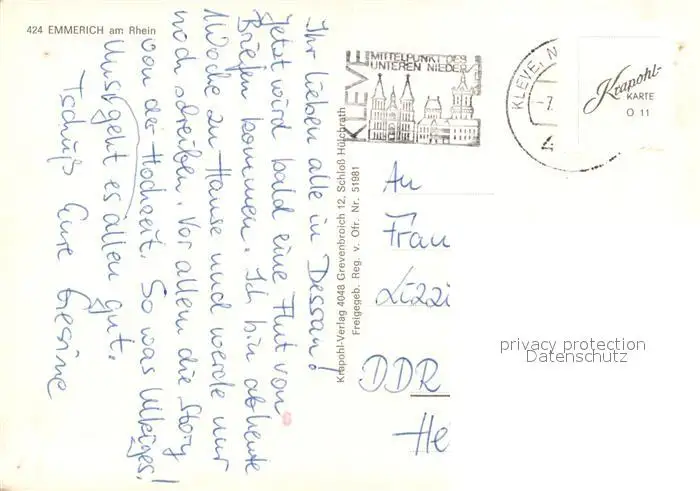 424 EMMERICH am Rhein
Ihr lieben alle in Dessau!
Jetzt wird bald eine Flut von
Briefen kommen. Ich bin ab heute
1 Woche zu Hause und werde nur
noch schreiben. Vor allem die Story
von der Hochzeit. So was Ulkiges!
Uns geht es allen gut.
Tschüß Eure Gesine
Krapohl-Verlag 4048 Grevenbroich 12, Schloß Hülchrath
Freigegeb. Reg. v. Ofr. Nr. 51981
KLEVE
MITTELPUNKT DES
UNTEREN NIEDER
KLEVE, N
-7.
4
Krapohl-
KARTE
O 11
An
Frau
Lizzi
DDR
He
privacy protection
Datenschutz